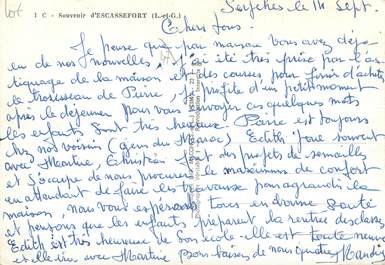 lot
1 C - Souvenir d'ESCASSEFORT (L.-et-G.)
Seyches le 14 Sept.
Chers tous.
Je pense que par maman vous avez déjà
eu de nos nouvelles. J'ai été très prise par l'as
tiquage de la maison et les courses pour finir d'acheter
le trousseau de Pierre. Je profite d'un petit moment
après le déjeuner pour vous envoyer ces quelques mots
les enfants sont très heureux. Pierre est toujours
chez nos voisins (gens du Maroc) Edith joue souvent
avec Martine. Christian fait des projets de semailles
et s'occupe de nous procurer le maximum de confort
en attendant de faire les travaux pour agrandir la
maison, nous vous espérons tous en bonne santé
et pensons que les enfants préparent la rentrée des classes
Edith est très heureuse de son école - elle est toute neuve
et elle ira avec Martine bons baisers de nous quatre